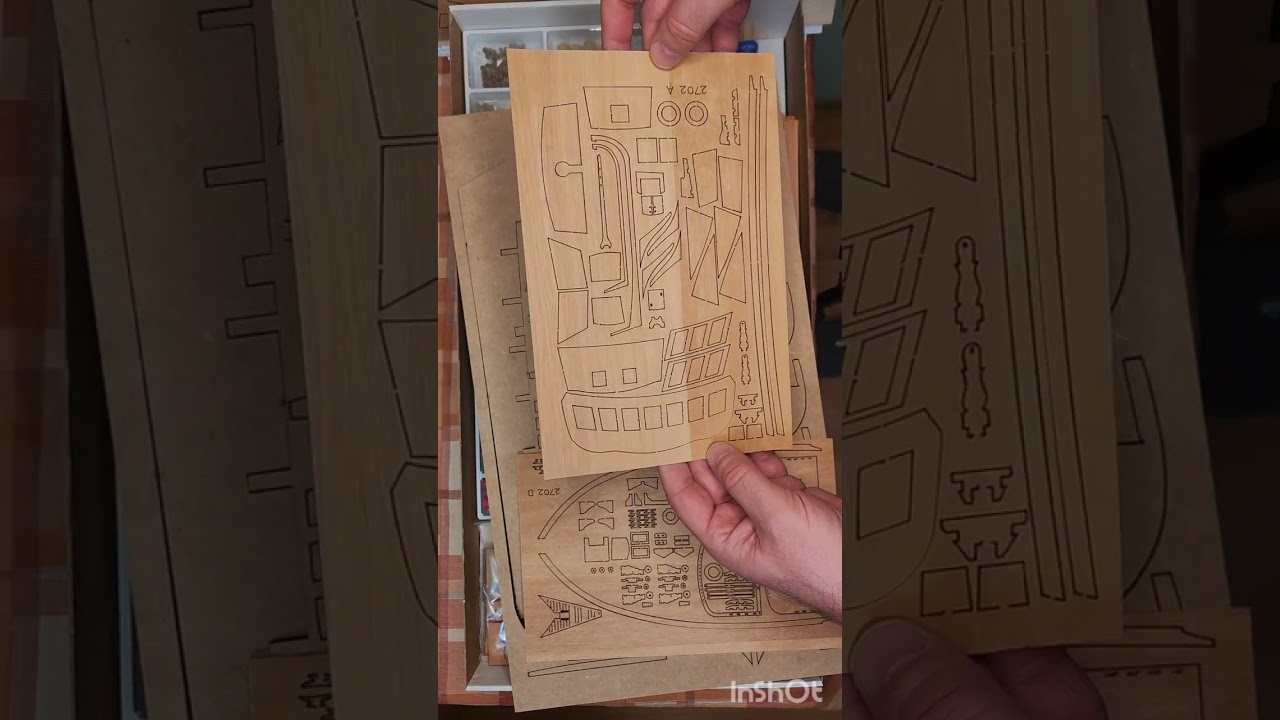 2702 A
2702 D
InShOt